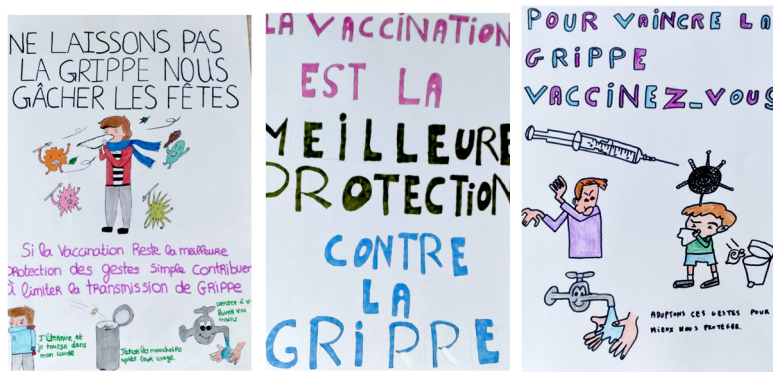 NE LAISSONS PAS
LA GRIPPE NOUS
GÂCHER LES FÊTES
Si la Vaccination Reste la meilleure
protection des gestes simple contribuer
À limiter la transmission de GRIPPE
J'éternue et
je tousse dans
mon coude
J'jette les mouchoirs
après leur usage
penser à v
laver vos
mains
LA VACCINATION
EST LA
MEILLEURE
PROTECTION
CONTRE
LA
GRIPPE
POUR VAINCRE LA
GRIPPE
VACCINEZ_VOUS
ADOPTONS CES GESTES POUR
MIEUX NOUS PROTÉGER.